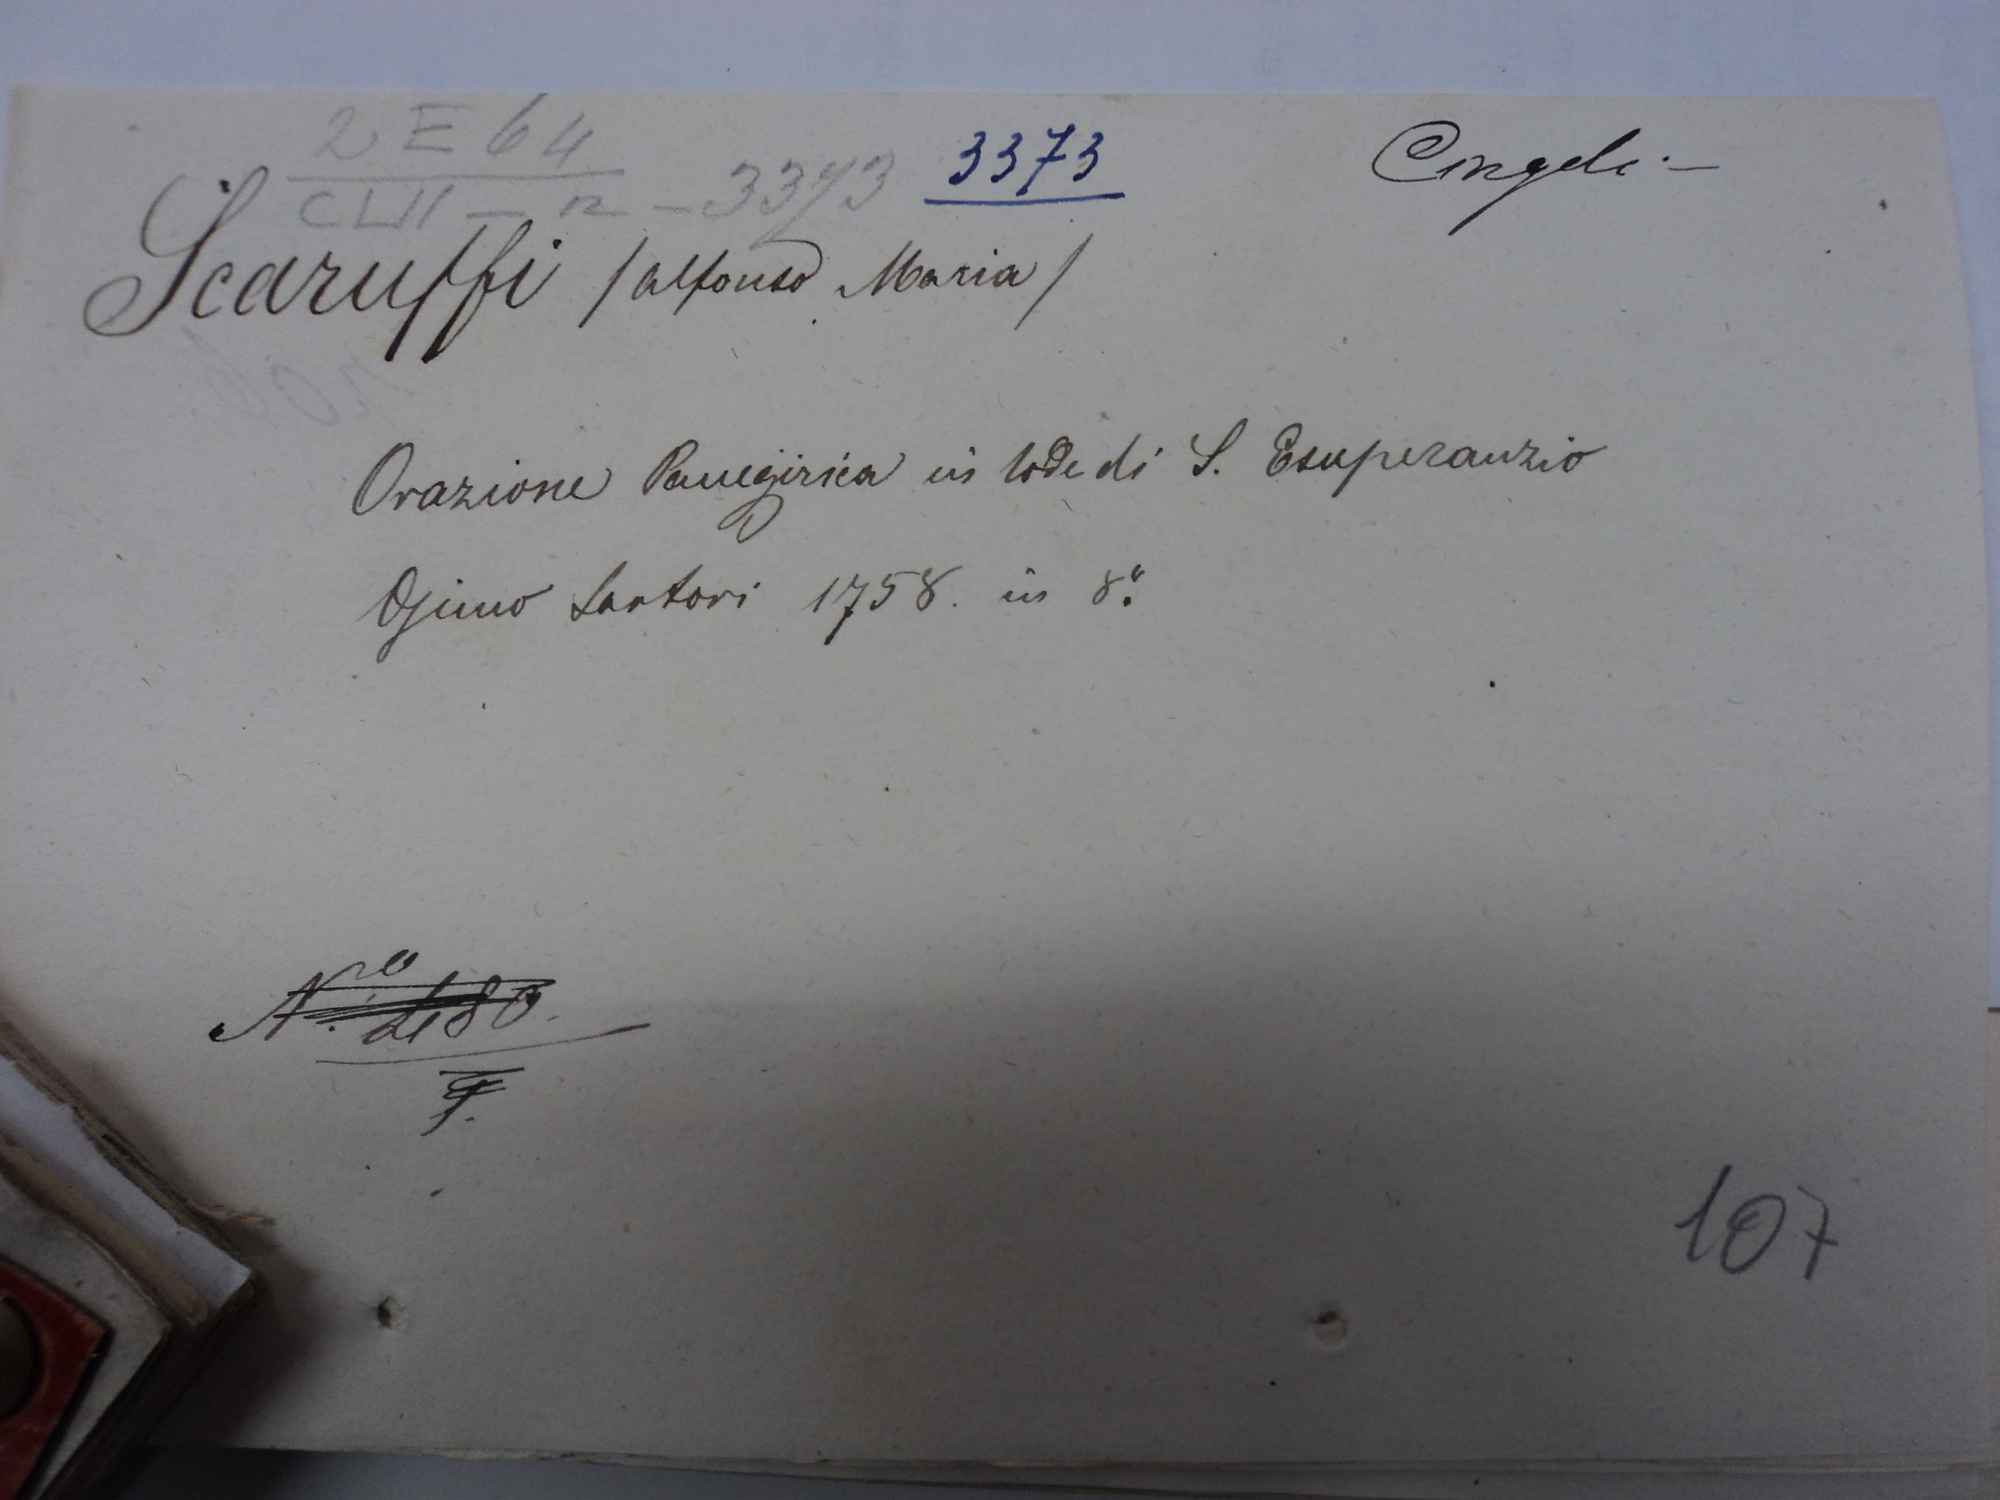 2 E 64
CLII — n — 3373 3373
Cingoli —
Scaruffi /Alfonso Maria/
Orazione Panegirica in lode di S. Esuperanzio
Osimo Sartori 1758. in 8.°
N.ro 480.
F.
107